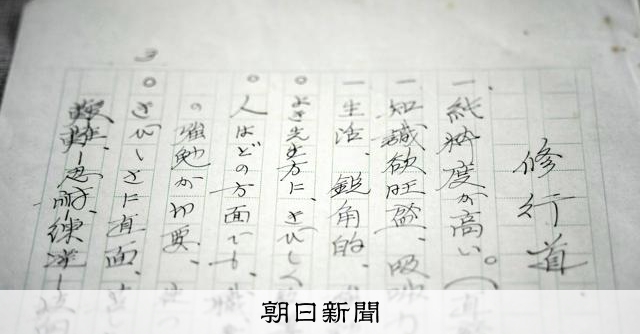 修行道
一、純粋度が高い。
一、知識欲旺盛、吸収力
一、生活、鋭角的、
○よき先生方に、きびしく
○人はどの方面でも、
の強勉が切要、
○きびしさに直面、
艱難—忍耐—練達—
朝日新聞